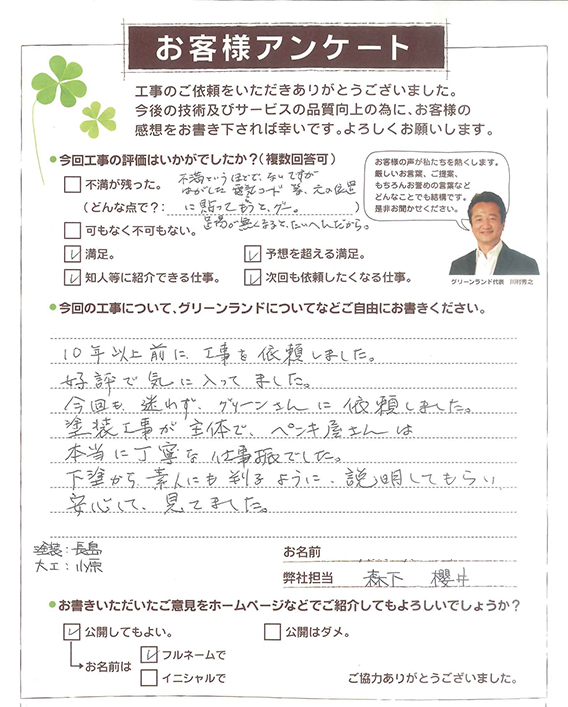 お客様アンケート
工事のご依頼をいただきありがとうございました。
今後の技術及びサービスの品質向上の為に、お客様の
感想をお書き下されば幸いです。よろしくお願いします。
●今回工事の評価はいかがでしたか？（複数回答可）
お客様の声が私たちを熱くします。
厳しいお言葉、ご提案、
もちろんお誉めの言葉など
どんなことでも結構です。
是非お聞かせください。
グリーンランド代表 川村秀之
不満が残った。
（どんな点で？：
）
不満というほどで、ないですが
はがした 電気コード 等、元の位置
に貼ってもらうと、グー。
足場が無くなると、たいへんだから。
可もなく不可もない。
満足。
予想を超える満足。
知人等に紹介できる仕事。
次回も依頼したくなる仕事。
●今回の工事について、グリーンランドについてなどご自由にお書きください。
10年以上前に、工事を依頼しました。
好評で気に入ってました。
今回も、迷わず、グリーンさんに依頼しました。
塗装工事が主体で、ペンキ屋さんは
本当に丁寧な仕事振でした。
下塗から、素人にも判るように、説明してもらい、
安心して、見てました。
塗装：長島
大工：小原
お名前
弊社担当 森下 櫻井
●お書きいただいたご意見をホームページなどでご紹介してもよろしいでしょうか？
公開してもよい。
公開はダメ。
お名前は
フルネームで
イニシャルで
ご協力ありがとうございました。